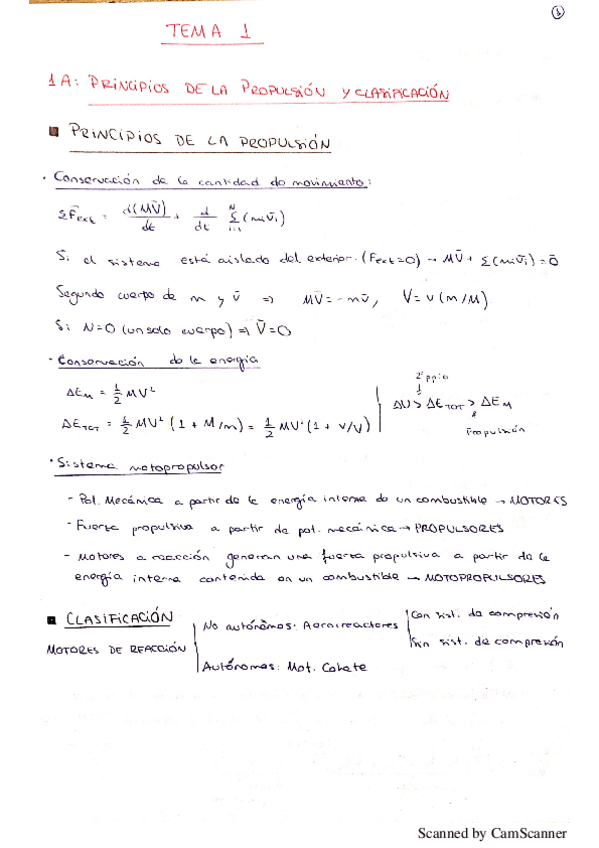 1
TEMA 1
1A: PRINCIPIOS DE LA PROPULSIÓN Y CLASIFICACIÓN
■ PRINCIPIOS DE LA PROPULSIÓN
· Conservación de la cantidad de movimiento:
ΣF̄ext = d(MV̄)/dt + d/dt Σ(i=1..N) (mi v̄i)
Si el sistema está aislado del exterior (Fext=0) → MV̄ + Σ(mi v̄i) = 0̄
Segundo cuerpo de m y v̄ ⇒ MV̄ = -mv̄, V = v(m/M)
Si N=0 (un solo cuerpo) ⇒ V̄=0
· Conservación de la energía
ΔE_M = 1/2 MV²
ΔE_TOT = 1/2 MV² (1 + M/m) = 1/2 MV²(1 + v/V)
2º ppio
ΔU > ΔE_TOT > ΔE_M
Propulsión
· Sistema motopropulsor
- Pot. Mecánica a partir de la energía interna de un combustible → MOTORES
- Fuerza propulsiva a partir de pot. mecánica → PROPULSORES
- Motores a reacción generan una fuerza propulsiva a partir de la
energía interna contenida en un combustible → MOTOPROPULSORES
■ CLASIFICACIÓN
MOTORES DE REACCIÓN
No autónomos: Aerorreactores
Con sist. de compresión
Sin sist. de compresión
Autónomos: Mot. Cohete
Scanned by CamScanner